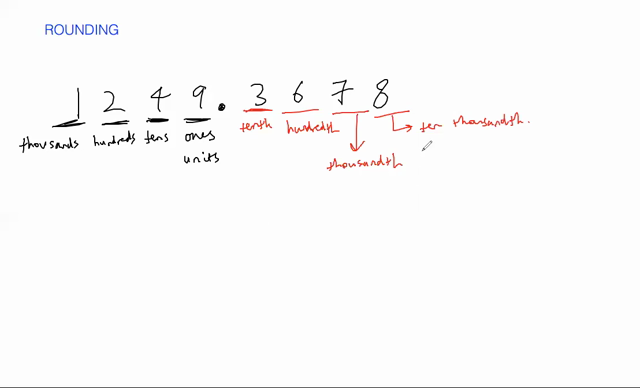 ROUNDING
1 2 4 9 . 3 6 7 8
thousands hundreds tens ones tenth hundredth → ten thousandth.
units
thousandth